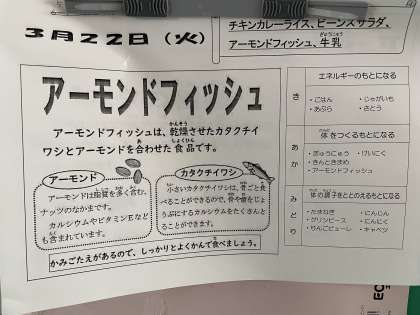 3月22日（火）
チキンカレーライス、ビーンズサラダ、
アーモンドフィッシュ、牛乳
アーモンドフィッシュ
アーモンドフィッシュは、乾燥させたカタクチイ
ワシとアーモンドを合わせた食品です。
アーモンド
アーモンドは脂質を多く含む、
ナッツのなかまです。
カルシウムやビタミンEなど
も含まれています。
カタクチイワシ
小さいカタクチイワシは、骨ごと食
べることができるので、骨や歯をじょ
うぶにするカルシウムをたくさんと
ることができます。
かみごたえがあるので、しっかりとよくかんで食べましょう。
き
エネルギーのもとになる
・ごはん ・じゃがいも
・あぶら ・さとう
あか
体をつくるもとになる
・ぎゅうにゅう ・けいにく
・きんときまめ
・アーモンドフィッシュ
みどり
体の調子をととのえるもとになる
・たまねぎ ・にんじん
・グリンピース ・にんにく
・りんごピューレ ・キャベツ